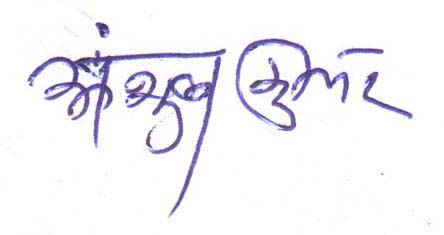 अंशुल कुमार